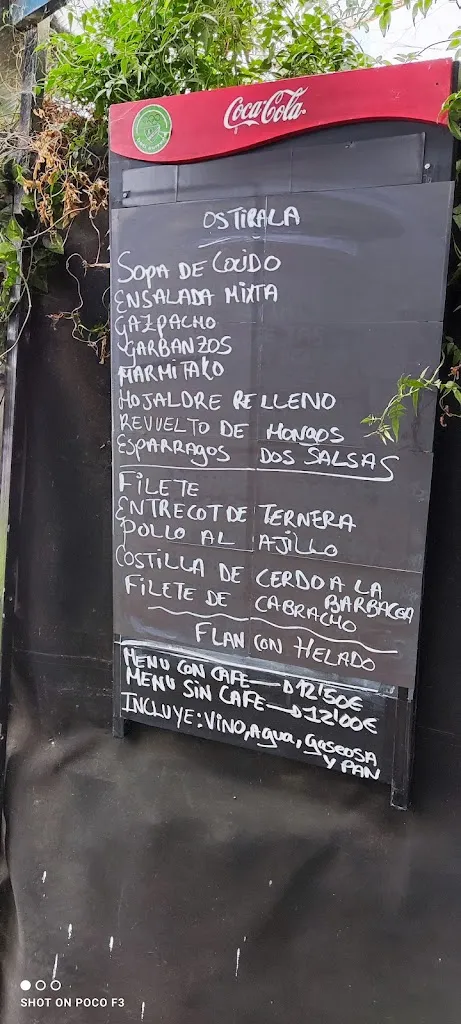 Coca-Cola
OSTIRALA
SOPA DE COCIDO
ENSALADA MIXTA
GAZPACHO
GARBANZOS
MARMITAKO
HOJALDRE RELLENO
REVUELTO DE HONGOS
ESPARRAGOS DOS SALSAS
FILETE
ENTRECOT DE TERNERA
POLLO AL AJILLO
COSTILLA DE CERDO A LA
BARBACOA
FILETE DE CABRACHO
FLAN CON HELADO
MENU CON CAFE 12'50€
MENU SIN CAFE 12'00€
INCLUYE: VINO, AGUA, GASEOSA
Y PAN
SHOT ON POCO F3